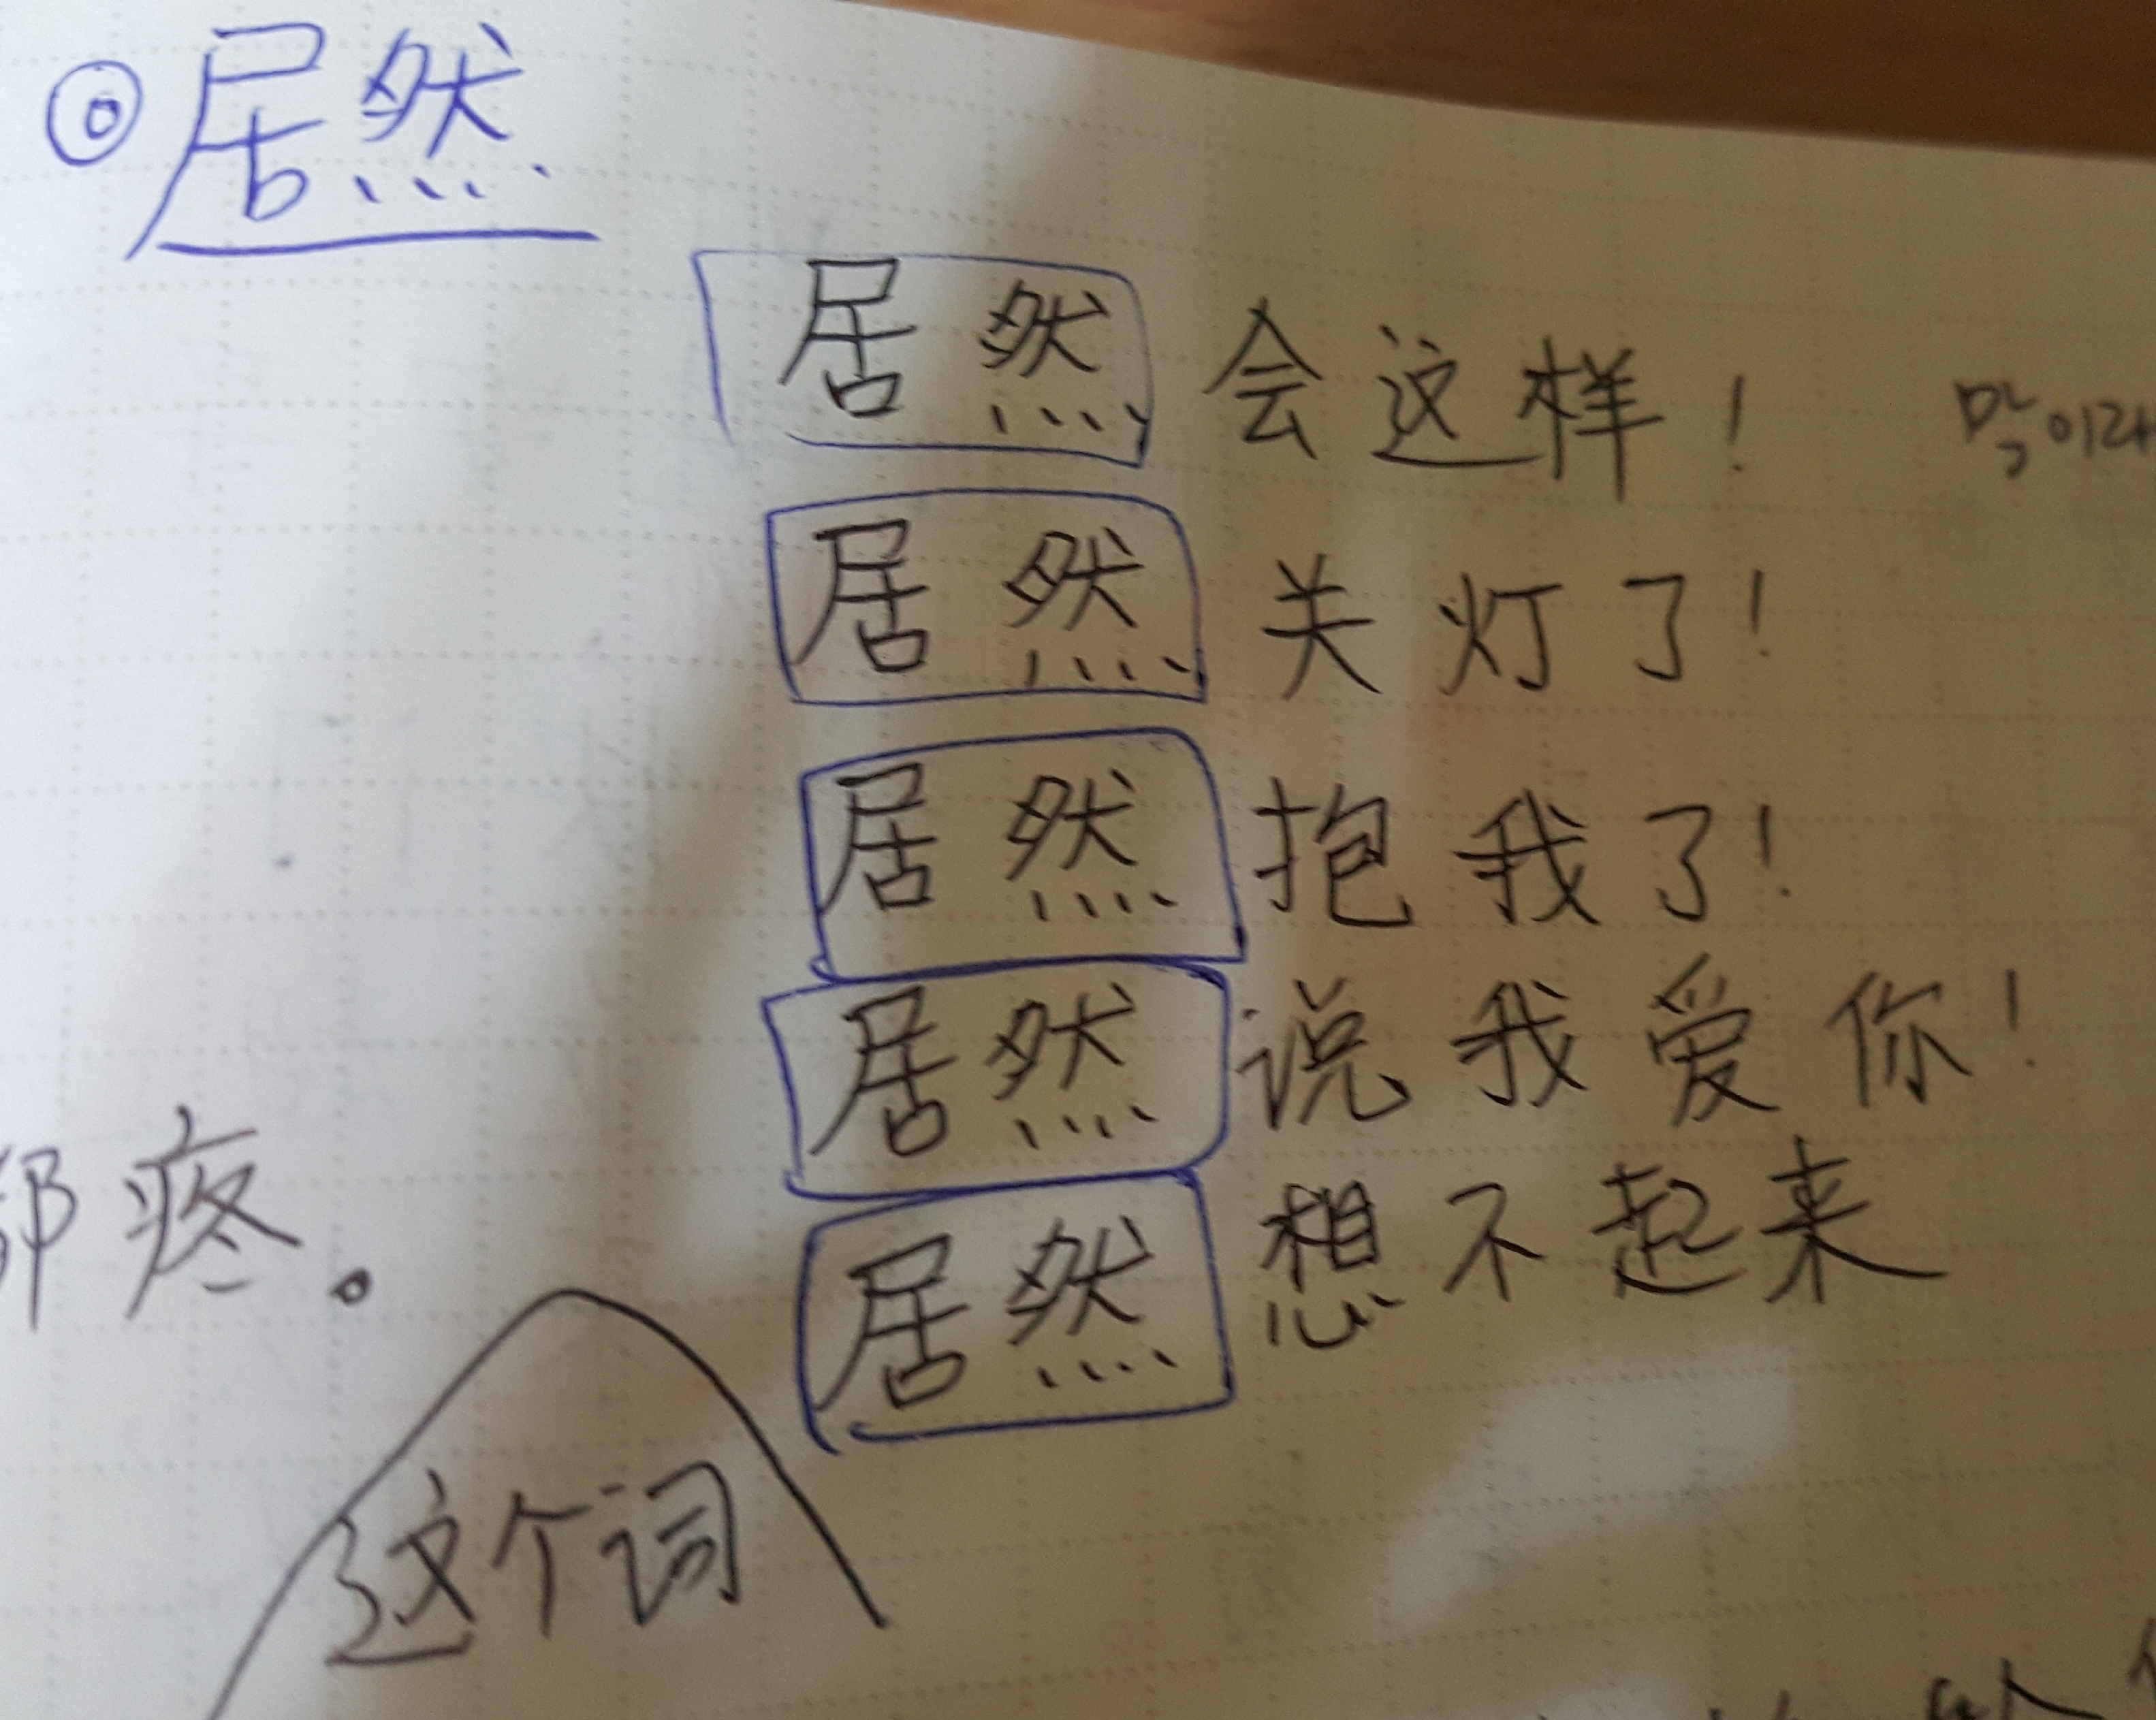 居然
居然会这样!
居然关灯了!
居然抱我了!
居然说我爱你!
居然想不起来
都疼.
这个词